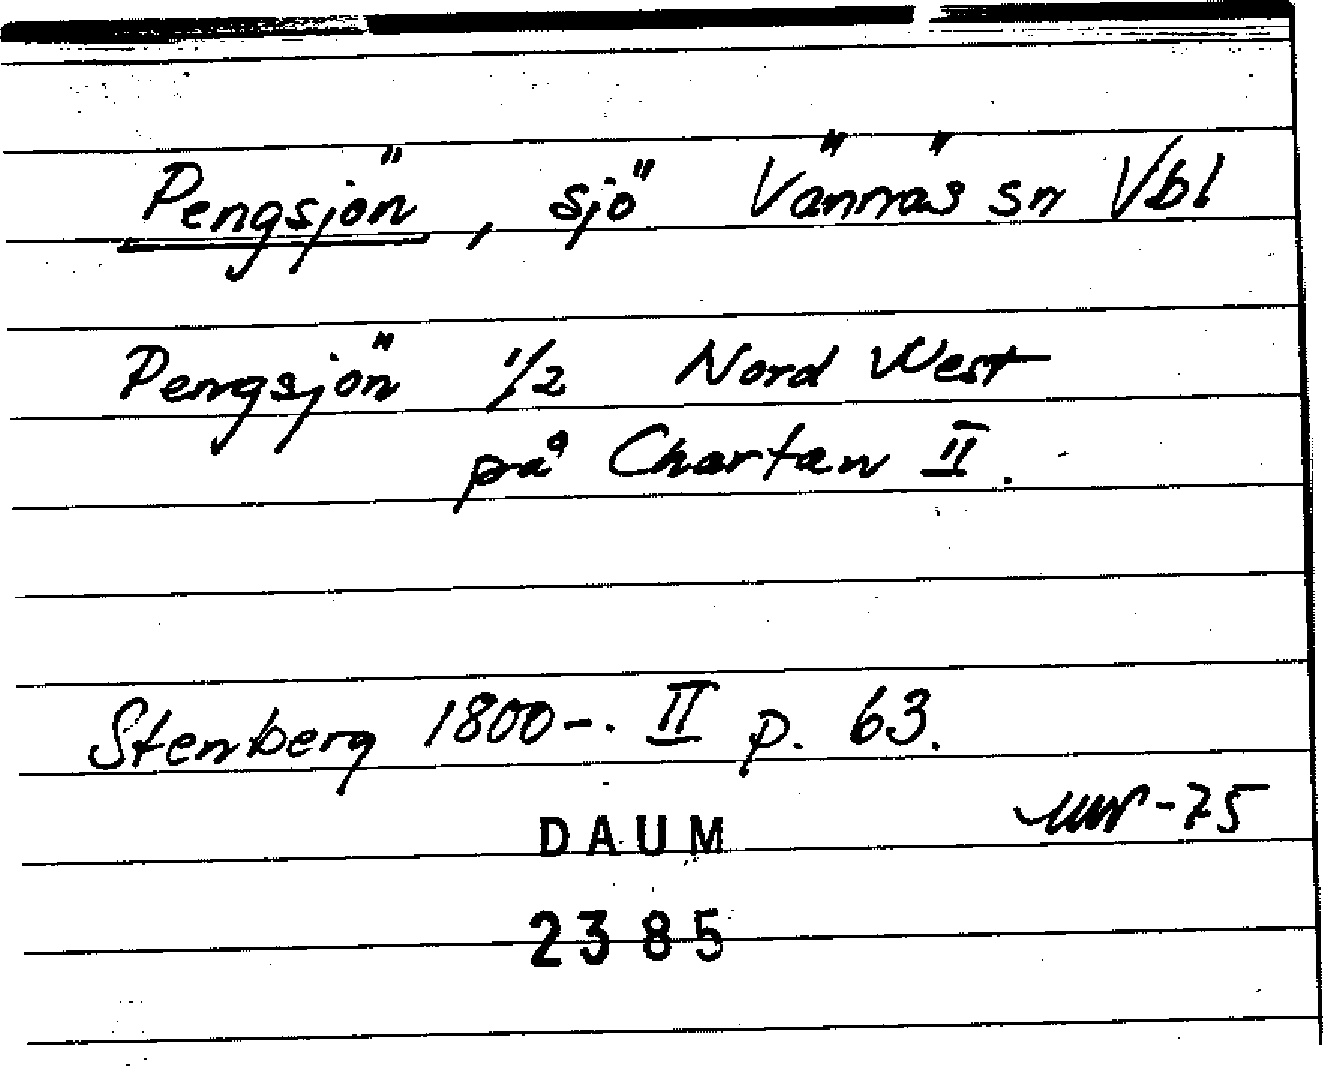 Pengsjön, sjö Vännäs sn Vbl
Pengsjön 1/2 Nord West
på Chartan II.
Stenberg 1800-. II p. 63.
-75
DAUM
2385